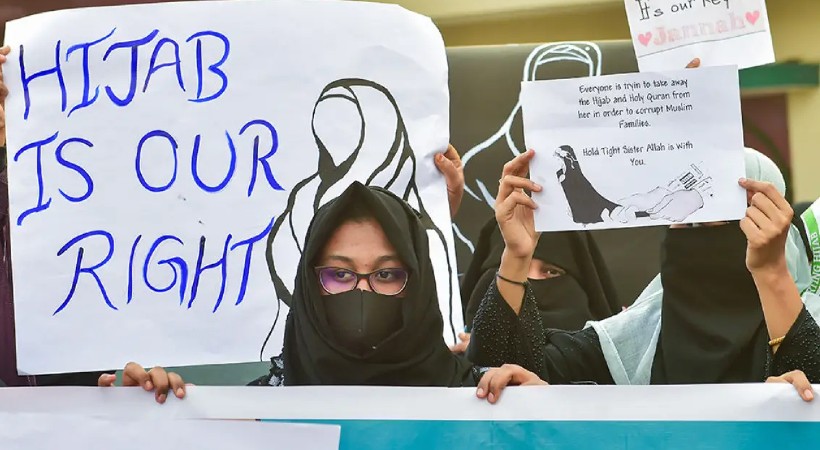 HIJAB
IS OUR
RIGHT
It's our Key
Jannah
Everyone is tryin to take away
the Hijab and Holy Quran from
her in order to corrupt Muslim
Families.
Hold Tight Sister Allah is With
You.
HIJAB